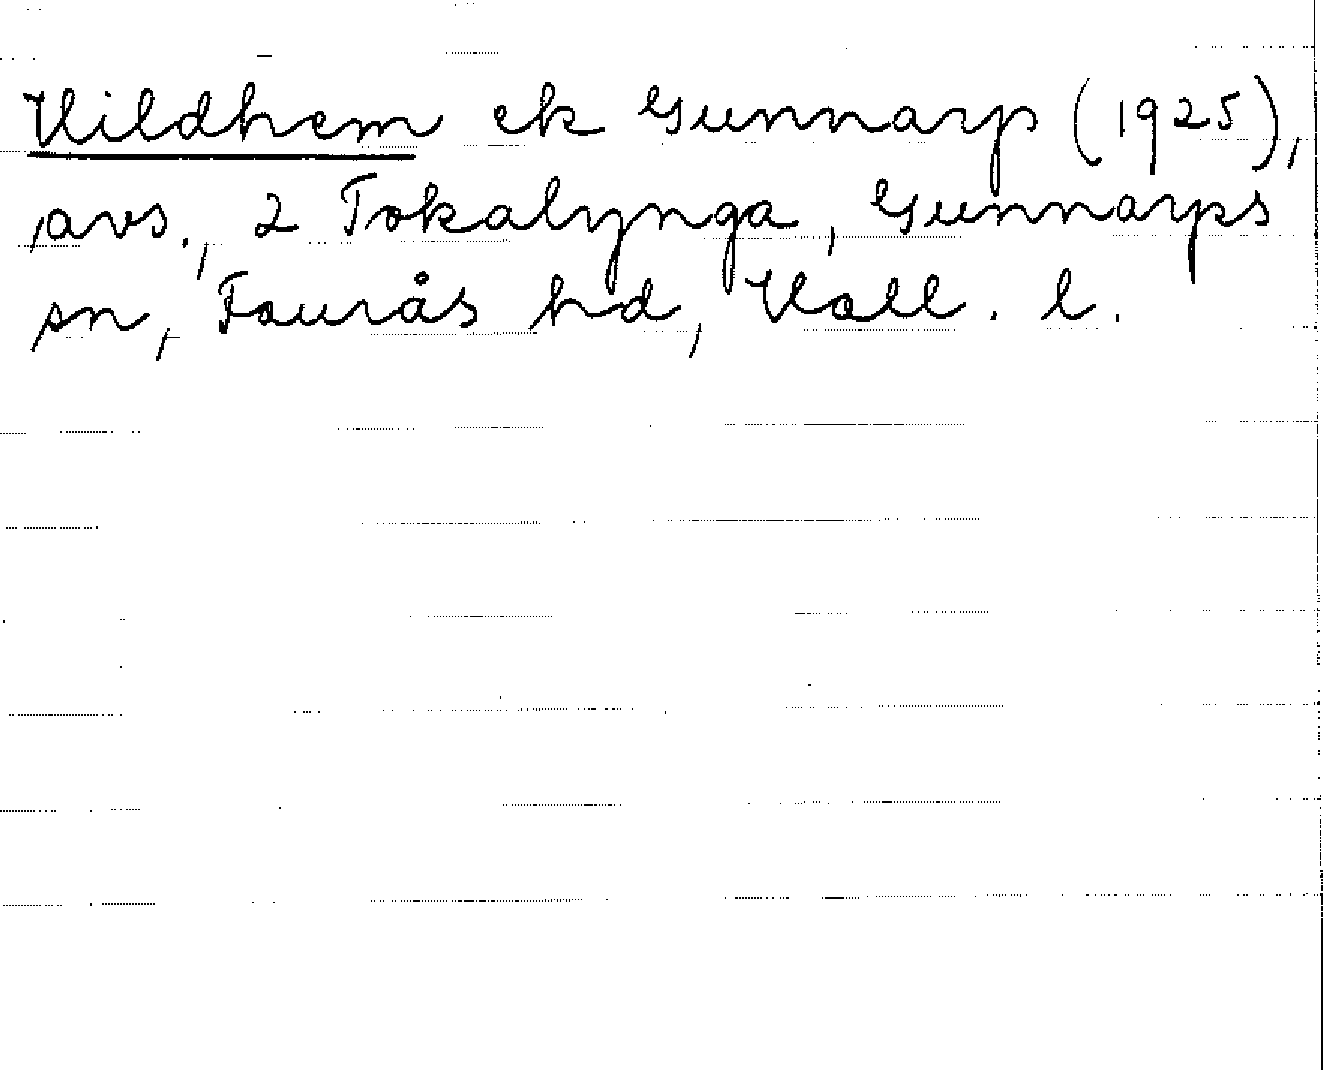 Hildhem ek Gunnarp (1925),
avs., 2 Tokalynga, Gunnarps
sn, Faurås hd, Hall. l.